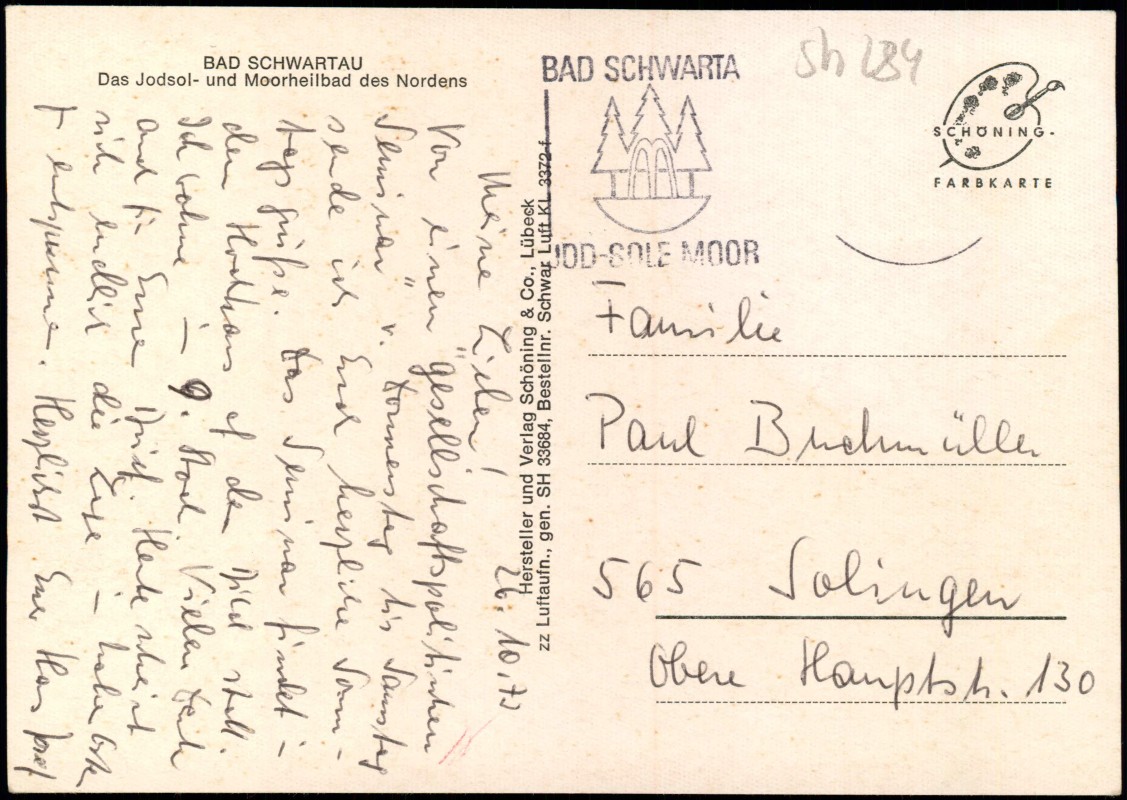 BAD SCHWARTAU
Das Jodsol- und Moorheilbad des Nordens
26. 10. 72
Meine Lieben!
Von einem "gesellschaftspolitischen
Seminar" v. Donnerstag bis Samstag
sende ich Euch herzliche Sonn-
tagsgrüße. Das Seminar findet i
dem Hochhaus auf dem Bild statt.
Ich wohne i 9. Stock. Vielen Dank
auch für Eure Grüße. Heute scheint
sich endlich die
+ entspanne. Herzlichst Euer Hans Josef
Hersteller und Verlag Schöning & Co., Lübeck
zz Luftaufn., gen. SH 33684, Bestellnr. Schwar. Luft KL 3372 f
BAD SCHWARTA
JOD-SOLE MOOR
Sh 284
SCHÖNING-
FARBKARTE
Familie
Paul Buchmüller
565 Solingen
Obere Hauptstr. 130